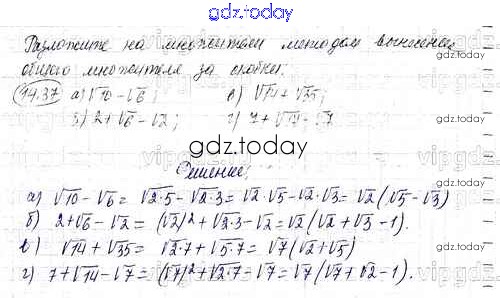 gdz.today
Разложите на множители методом вынесения
общего множителя за скобки:
14.37 а) √10 - √6; в) √14 + √35;
б) 2 + √6 - √2; г) 7 + √14 - √7
gdz.today
Решение:
а) √10 - √6 = √2·5 - √2·3 = √2·√5 - √2·√3 = √2(√5 - √3)
б) 2 + √6 - √2 = (√2)² + √2·3 - √2 = √2(√2 + √3 - 1).
в) √14 + √35 = √2·7 + √5·7 = √7(√2 + √5)
г) 7 + √14 - √7 = (√7)² + √2·7 - √7 = √7(√7 + √2 - 1).
gdz.today